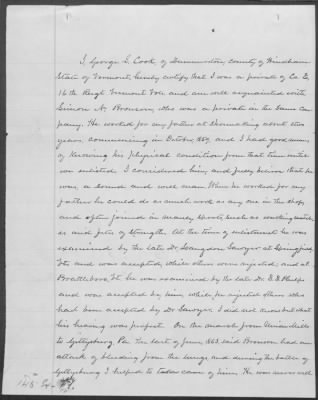 I, George S. Cook, of Dummerston, county of Windham
State of Vermont, hereby certify that I was a private of Co. E,
16th Regt Vermont Vols and am well acquainted with
Simon A. Bronson, who was a private in the same Com-
pany. He worked for my father at Shoemaking about two
years commencing in October, 1859, and I had good means
of Knowing his physical condition from that time until
we enlisted. I considered him, and fully believe that he
was, a sound and well man. When he worked for my
father he could do as much work as any one in the shop,
and often joined in manly sports, such as
and feats of strength. At the time of enlistment he was
examined by the late Dr. Langdon Sawyer at Springfield,
Vt. and was accepted, while others were rejected; and at
Brattleboro, Vt. he was examined by the late Dr. E. E. Phelps
and was accepted by him, while he rejected others who
had been accepted by Dr. Sawyer. I did not know but what
his hearing was perfect. On the march from Union Mills
to Gettysburg, Pa. the last of June, 1863, said Bronson had an
attack of bleeding from the lungs and during the battle of
Gettysburg I helped to take care of him. He was never well